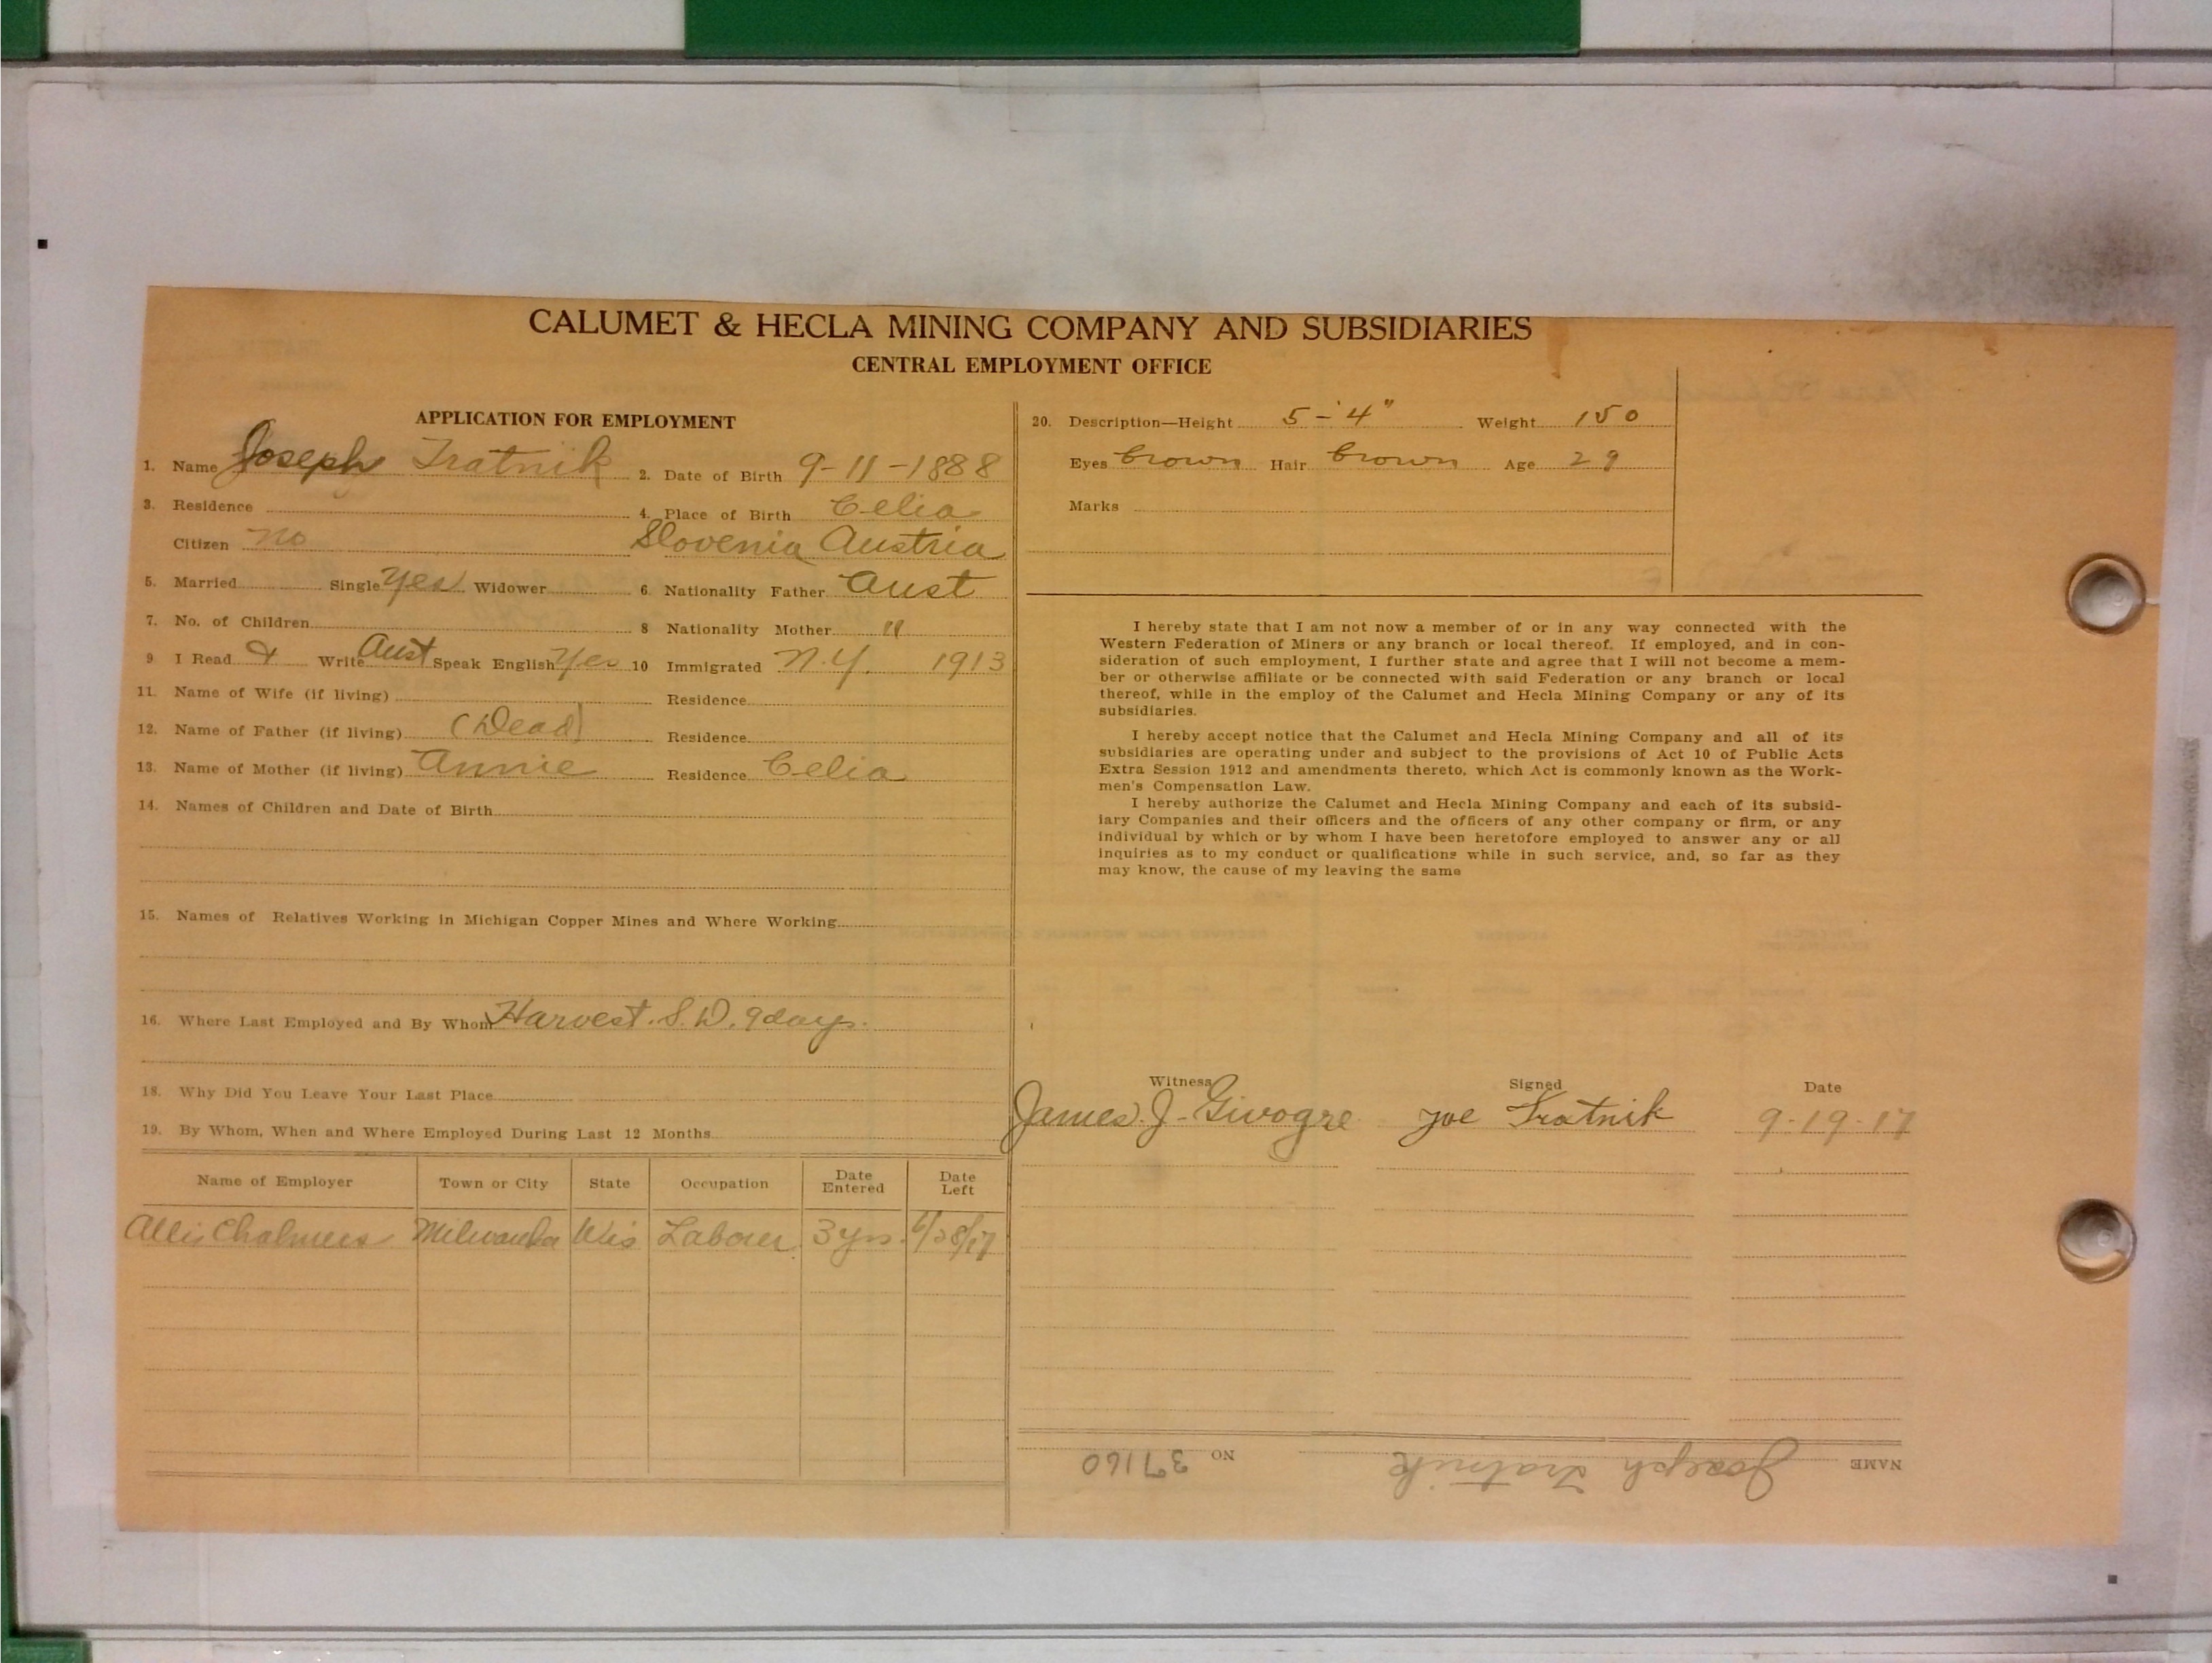 CALUMET & HECLA MINING COMPANY AND SUBSIDIARIES
CENTRAL EMPLOYMENT OFFICE
APPLICATION FOR EMPLOYMENT
1. Name Joseph Tratnik 2. Date of Birth 9-11-1888
3. Residence 4. Place of Birth Celia
Citizen no Slovenia Austria
5. Married Single Yes Widower 6. Nationality Father Aust
7. No. of Children 8 Nationality Mother "
9 I Read & Write Aust Speak English Yes 10 Immigrated N.Y. 1913
11. Name of Wife (if living) Residence
12. Name of Father (if living) (Dead) Residence
13. Name of Mother (if living) Annie Residence Celia
14. Names of Children and Date of Birth
15. Names of Relatives Working in Michigan Copper Mines and Where Working
16. Where Last Employed and By Whom Harvest. S.D. 9 days.
18. Why Did You Leave Your Last Place
19. By Whom, When and Where Employed During Last 12 Months
Name of Employer Town or City State Occupation Date Entered Date Left
Allis Chalmers Milwaukee Wis Laborer. 3 yrs. 6/28/17
20. Description—Height 5-4" Weight 150
Eyes brown Hair brown Age 29
Marks
I hereby state that I am not now a member of or in any way connected with the
Western Federation of Miners or any branch or local thereof. If employed, and in con-
sideration of such employment, I further state and agree that I will not become a mem-
ber or otherwise affiliate or be connected with said Federation or any branch or local
thereof, while in the employ of the Calumet and Hecla Mining Company or any of its
subsidiaries.
I hereby accept notice that the Calumet and Hecla Mining Company and all of its
subsidiaries are operating under and subject to the provisions of Act 10 of Public Acts
Extra Session 1912 and amendments thereto, which Act is commonly known as the Work-
men's Compensation Law.
I hereby authorize the Calumet and Hecla Mining Company and each of its subsid-
iary Companies and their officers and the officers of any other company or firm, or any
individual by which or by whom I have been heretofore employed to answer any or all
inquiries as to my conduct or qualifications while in such service, and, so far as they
may know, the cause of my leaving the same
Witness Signed Date
James J. Givogre Joe Tratnik 9-19-17
NAME Joseph Tratnik NO 37160